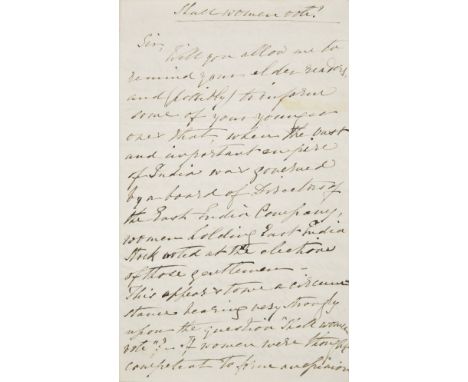 Shall women vote?
Sir,
Will you allow me to
remind your elder readers,
and (possibly) to inform
some of your younger
ones that, when the vast
and important empire
of India was governed
by a board of Directors of
the East India Company,
women holding East India
Stock voted at the elections
of those gentlemen –
This appears to me a circum
stance bearing very strongly
upon the question "Shall women
vote"? – If women were thought
competent to form an opinion